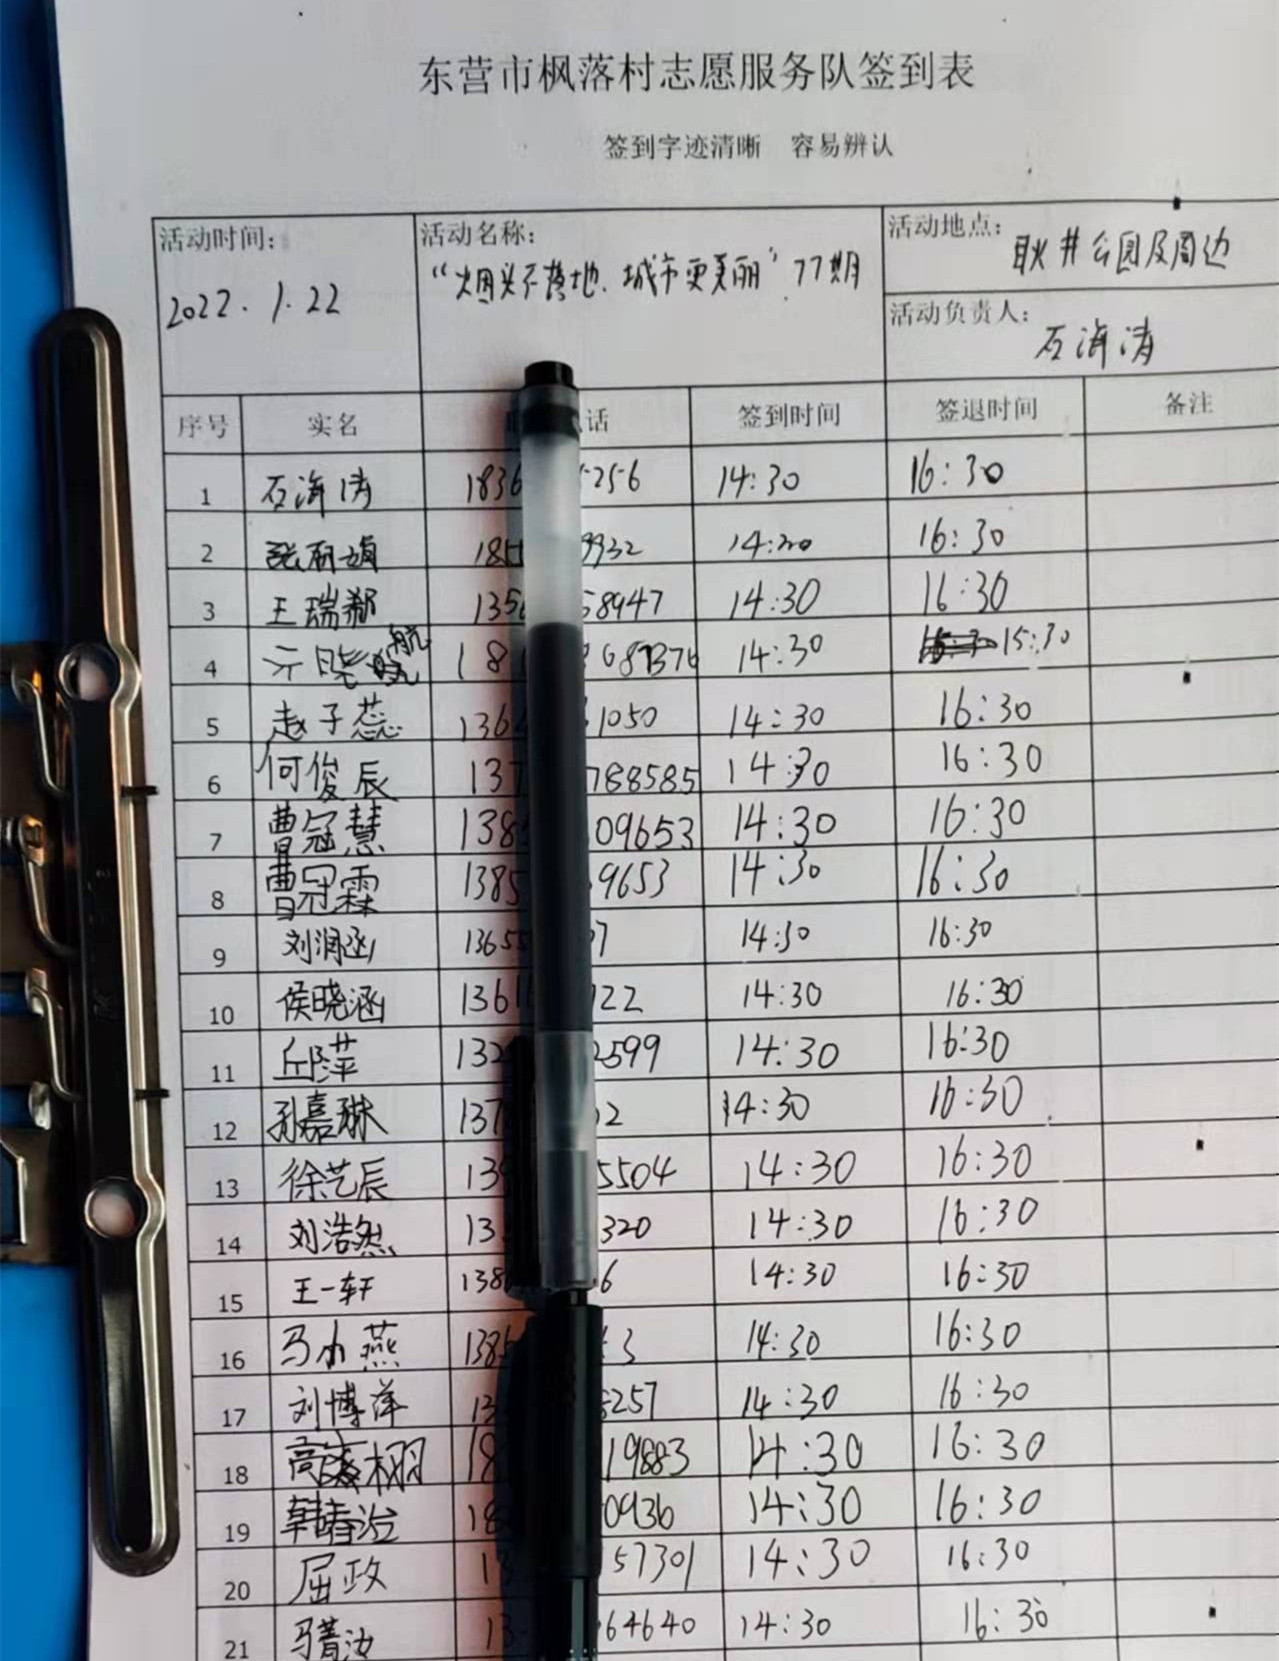 东营市枫落村志愿服务队签到表
签到字迹清晰 容易辨认
活动时间: 2022.1.22
活动名称: “烟头不落地、城市更美丽”77期
活动地点: 耿井公园及周边
活动负责人: 石海涛
序号 实名 话 签到时间 签退时间 备注
1 石海涛 1836 256 14:30 16:30
2 185 9932 14:30 16:30
3 王瑞 135 58947 14:30 16:30
4 亓晓航 18 687376 14:30 15:30
5 赵子蕊 136 1050 14:30 16:30
6 何俊辰 137 788585 14:30 16:30
7 曹冠慧 138 09653 14:30 16:30
8 曹冠霖 1385 9653 14:30 16:30
9 刘润涵 13655 7 14:30 16:30
10 侯晓涵 1361 122 14:30 16:30
11 邱萍 132 2599 14:30 16:30
12 孙嘉琳 137 2 14:30 16:30
13 徐艺辰 135 5504 14:30 16:30
14 刘浩然 13 320 14:30 16:30
15 王一轩 138 6 14:30 16:30
16 马小燕 1385 3 14:30 16:30
17 刘博萍 13 257 14:30 16:30
18 高 18 19883 14:30 16:30
19 韩春治 18 0936 14:30 16:30
20 屈政 13 57301 14:30 16:30
21 马菁汝 13 64640 14:30 16:30